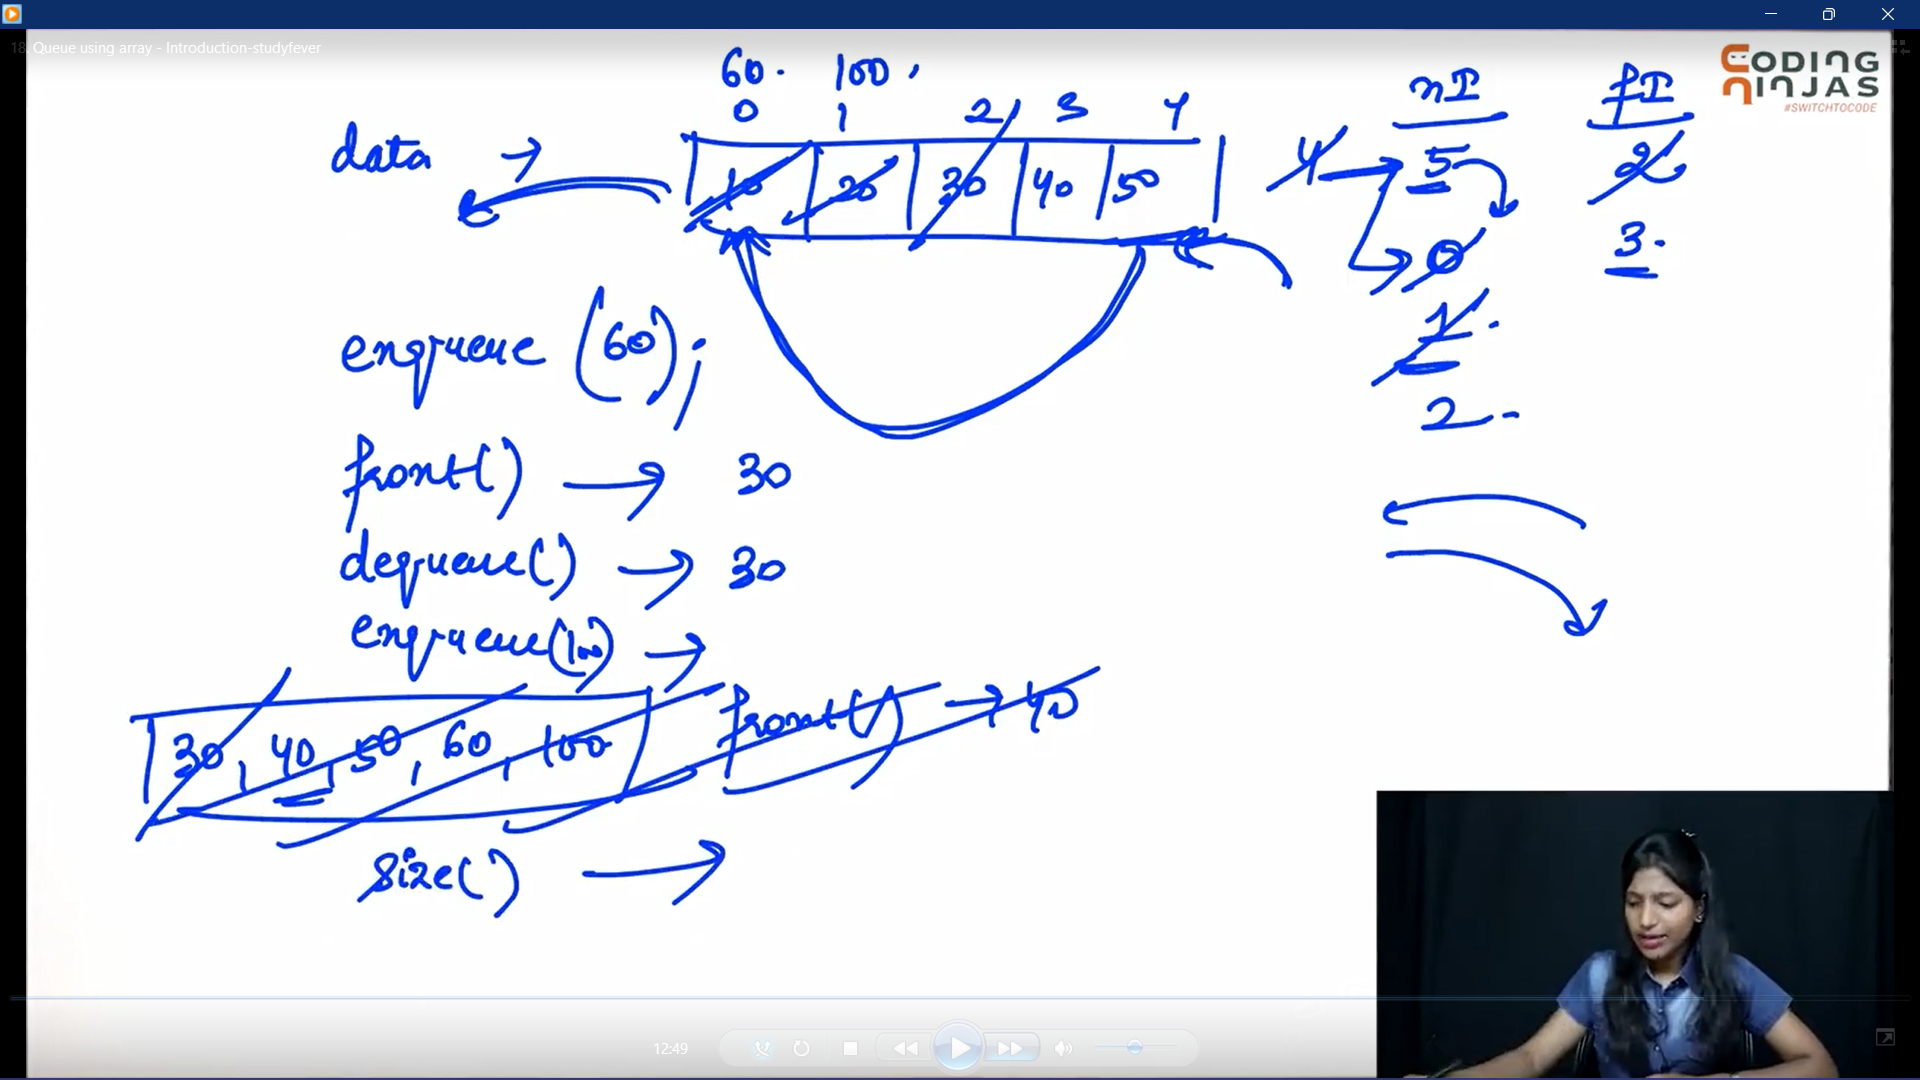 18. Queue using array - Introduction-studyfever
CODING NINJAS
#SWITCHTOCODE
60. 100,
0 1 2 3 4
data → 10 20 30 40 50
nI fI
4 → 5 2
0 3.
1.
2.
enqueue (60);
front() → 30
dequeue() → 30
enqueue(100) →
30, 40, 50, 60, 100 front() → 40
size() →
12:49